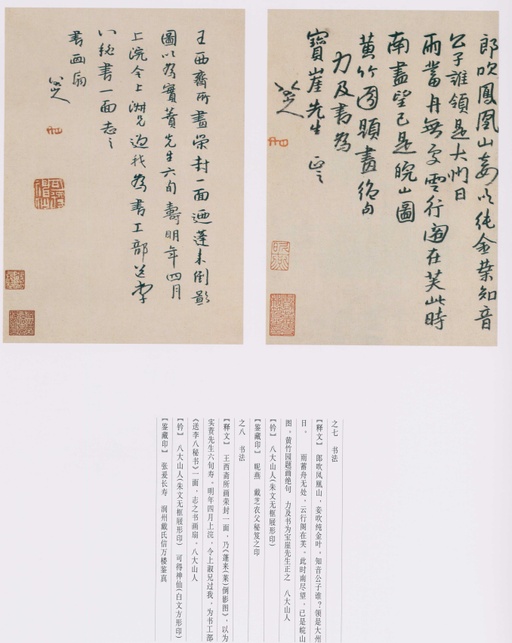 郎吹鳳凰山妾吹純金葉知音
公子誰領是大州日
雨蓄舟無處雲行閣在芙此時
南盡望已是皖山圖
黄竹園題畫絕句
力及書為
寶崖先生正之
八大山人
王西齋所畫崇封一面迺蓬來倒影
圖以為實菴先生六旬壽明年四月
上浣令上淑兄過我為書工部送李
八秘書一面志之
書画扇
八大山人
之七 书法
【释文】 郎吹凤凰山,妾吹纯金叶。知音公子谁?领是大州
日。 雨蓄舟无处,云行阁在芙。此时南尽望,已是皖山
图。黄竹园题画绝句,力及书为宝崖先生正之 八大山人
【钤】 八大山人(朱文无框屐形印)
【鉴藏印】 昵燕 戴芝农父秘笈之印
之八 书法
【释文】 王西斋所画荣封一面,乃《蓬来(莱)倒影图》,以为
实庵先生六旬寿。明年四月上浣,令上淑兄过我,为书工部
《送李八秘书》一面,志之书画扇。八大山人
【钤】 八大山人(朱文无框屐形印) 可得神仙(白文方形印)
【鉴藏印】 张爰长寿 润州戴氏信万楼鉴真